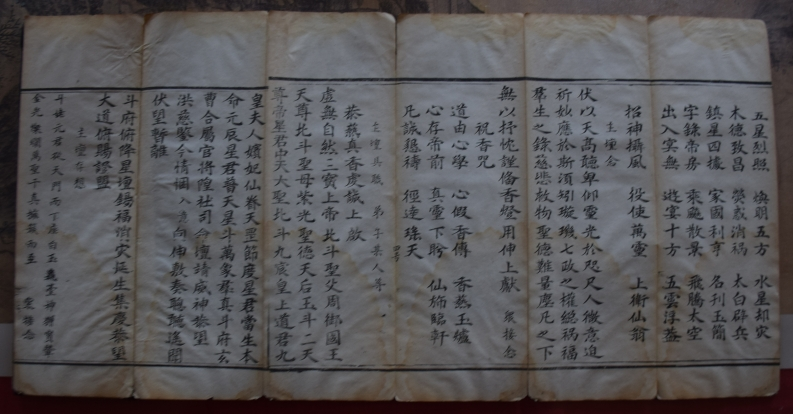 五星烈照　煥明五方　水星却災
木德致昌　熒惑消禍　太白辟兵
鎮星四據　家國利亨　名刊玉簡
字錄帝房　乘飈散景　飛騰太空
出入冥無　遊宴十方　五雲浮蓋
招神攝風　役使萬靈　上衛仙翁
主壇念
伏以天高聽卑仰靈光於咫尺人微意迫
祈妙應於斯須矧璇璣七政之權總禍福
羣生之錄慈悲救物聖德難量塵凡之下
無以抒忱謹俻香燈用伸上獻　眾接念
祝香咒
道由心學　心假香傳　香爇玉爐
心存帝前　真靈下盼　仙旆臨軒
凡誠懇禱　徑達瑤天
主壇具職　弟子某人等
恭爇真香虔誠上啟
虛無自然三寶上帝北斗聖父周御國王
天尊北斗聖母紫光聖德天后玉斗二天
尊帝星君中天大聖北斗九宸皇上道君九
皇夫人嬪妃仙眷天罡節度星君當生本
命元辰星君普天星斗萬象羣真斗府玄
曹合屬官將隍社司仝壇請威神恭望
洪慈鑒今情悃八方向伸敷奏聽聽遙聞
伏望暫離
斗府俯降星壇錫福消災延生集慶恭望
大道俯賜證盟
主壇存想
斗姥元君
金光